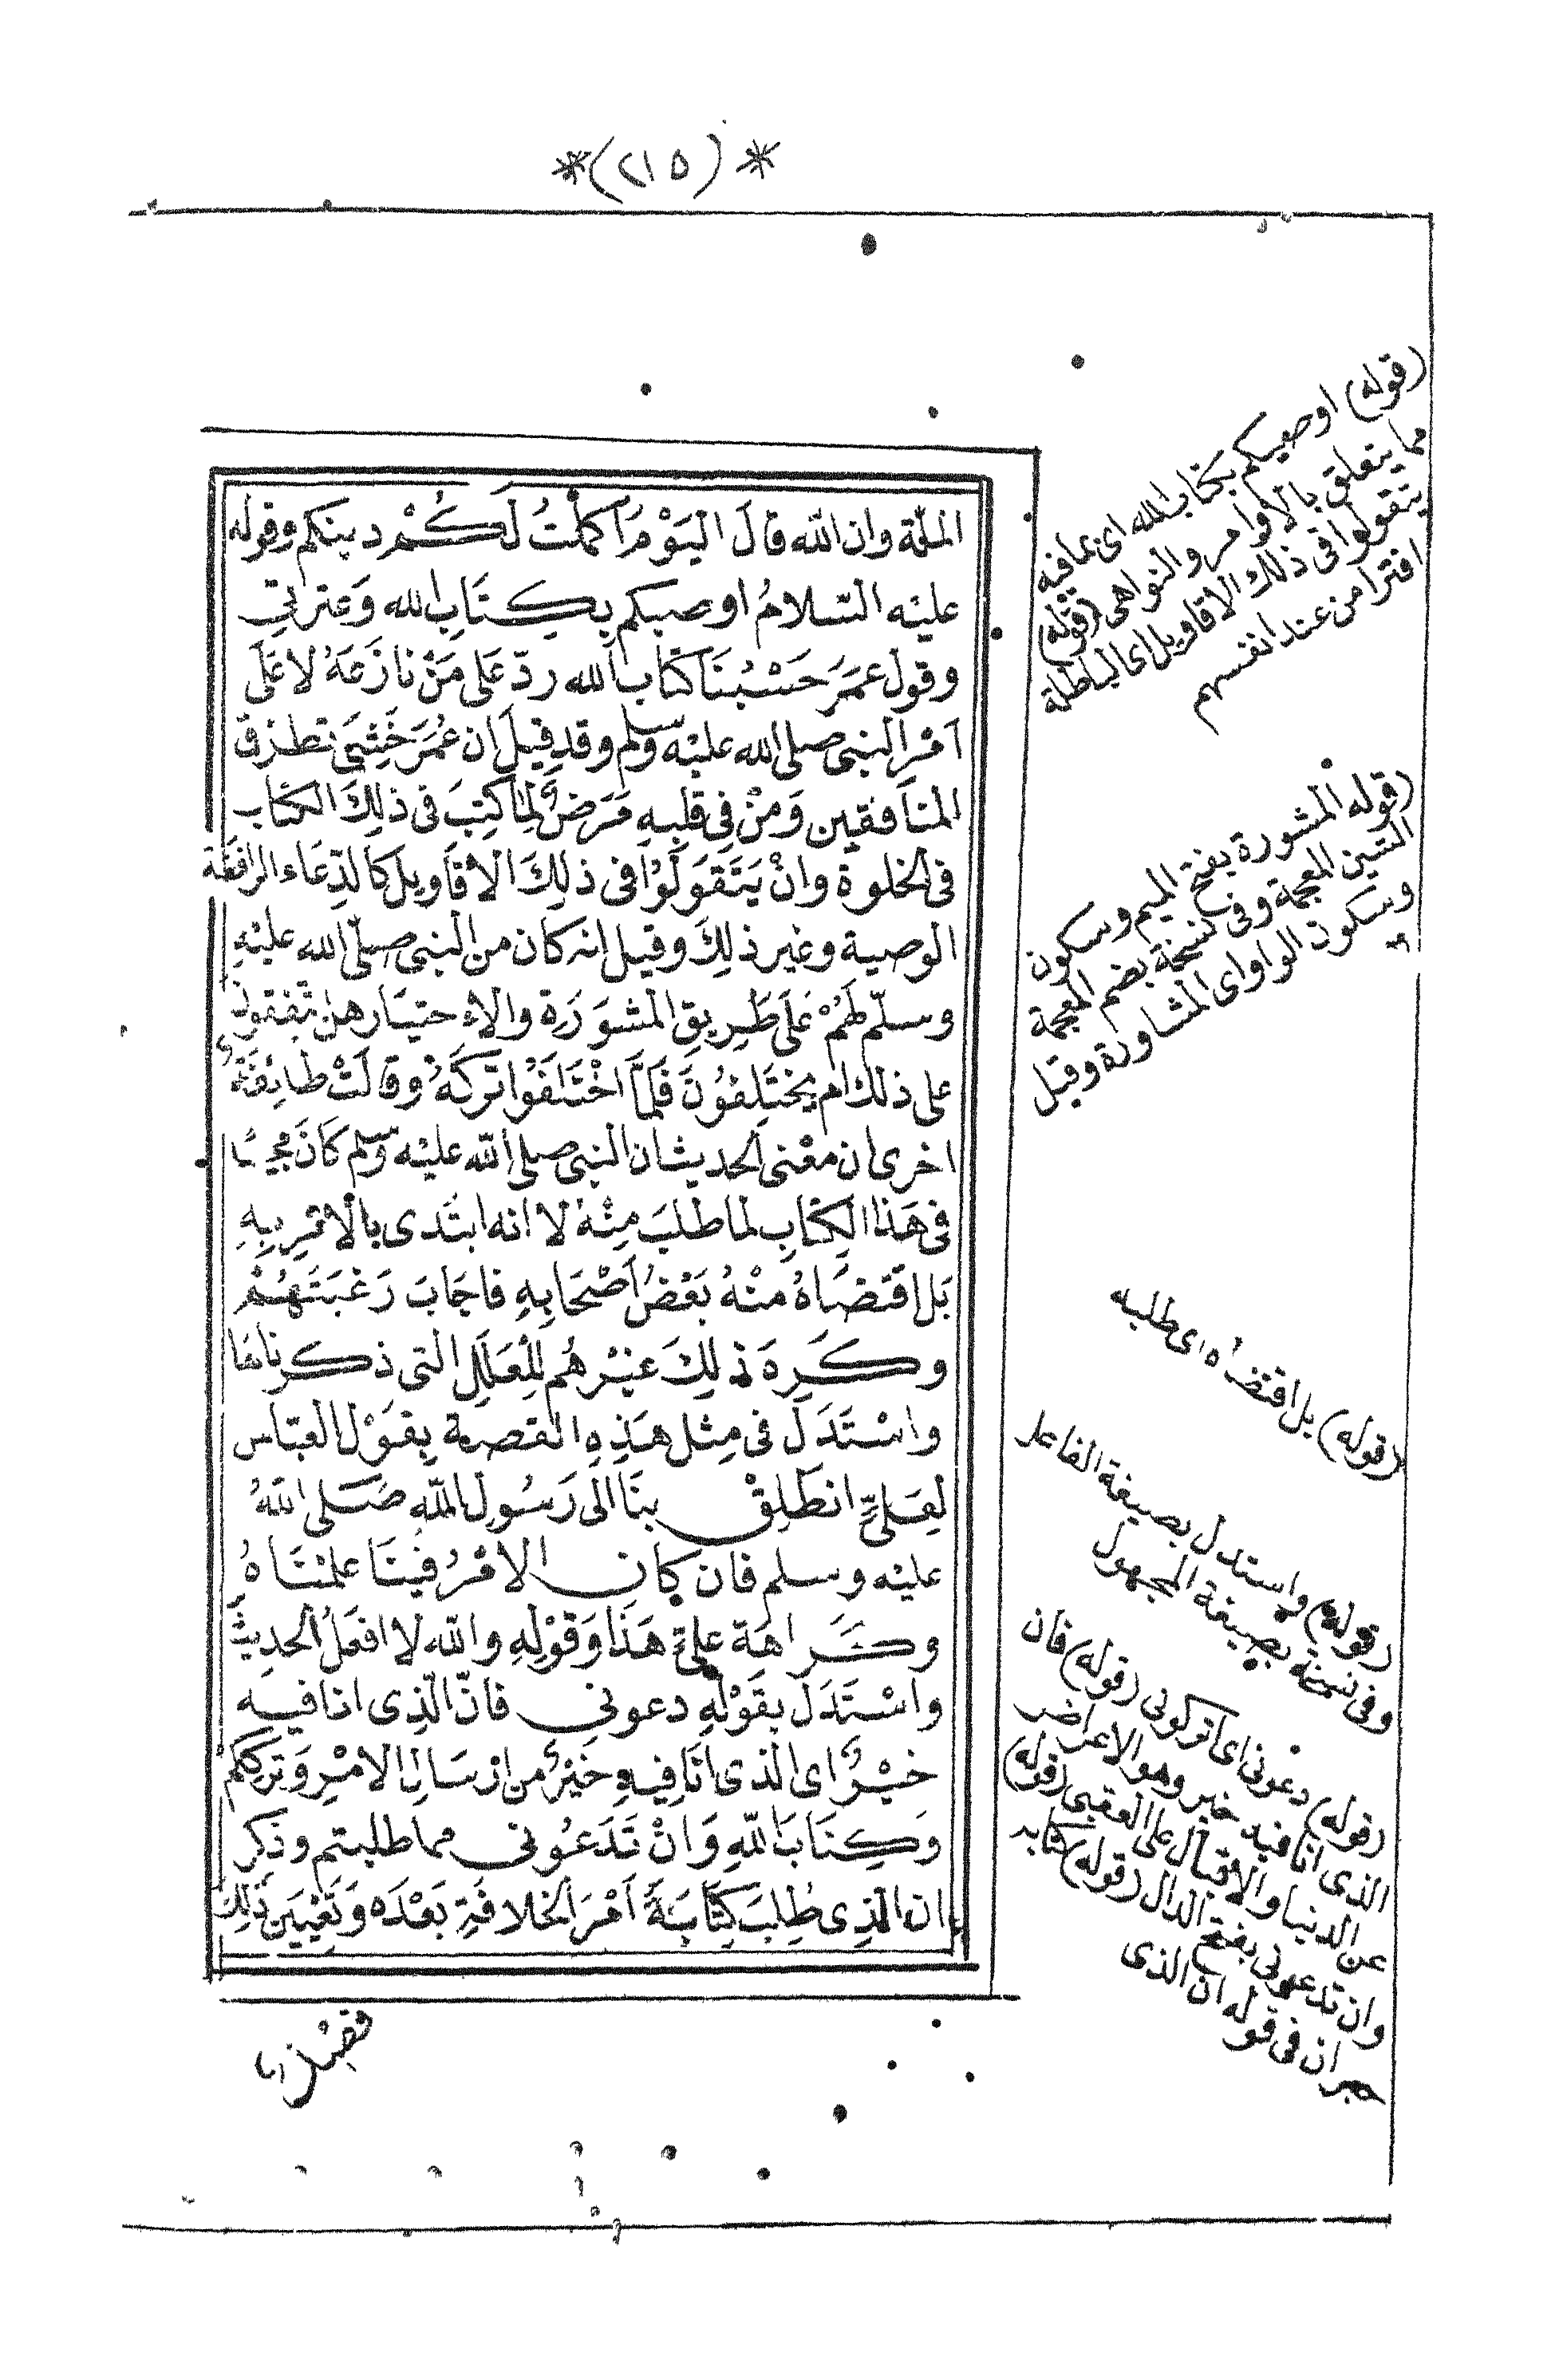 *(٢١٥)*
الملّة وان الله قالَ اليَوْمَ اَكملْتُ لَكُمْ دينكم وقوله
عليْه السّلامُ اوصيكم بِكِتَابِ الله وَعترتي
وقول عمَرَ حَسْبُنَا كتَابُ الله ردّ عَلى مَنْ نَازَعَهُ لا عَلَى
اَمْرِ النبى صلى الله عليْه وسلم وقد قِيلَ ان عُمَرَ خَشِىَ تطرّقَ
المنافقين وَمَنْ فى قلبِهِ مَرَضٌ لِمَا كُتِبَ فى ذلِكَ الكتاب
فى الخلوة وانْ يَتَقَوَّلُوا فى ذلِكَ الاقَاويل كَادّعَاء الرافضَة
الوصية وغير ذلِكَ وقيل انه كان من النبى صلّى الله عليْهِ
وسلّم لَهُمْ عَلَى طَرِيقِ المشوَرَةِ والاختيَار هل تَّفقونَ
على ذلك ام يختَلِفُونَ فَلمَّا اخْتَلَفُوا تَرَكَهُ وقالَتْ طَائِفَةٌ
اخرى ان معْنى الحديث ان النبى صلى الله عليْه وسلم كانَ مجيبًا
فى هَذا الكِتَابِ لما طلبَ مِنْهُ لا انه ابتَدى بالامْرِ بِهِ
بَل اقتَضَاهُ منْهُ بَعْضُ اَصْحَابِهِ فاجَابَ رَغبَتَهُمْ
وكَرِهَ ذلِكَ غيْرهُم لِلْعِلَلِ التى ذكرناهَا
واسْتَدَلّ فى مِثل هَذِهِ القصة بِقوْل العبّاس
لِعَلىٍّ انطَلِقْ بنَا الى رَسُولِ اللّهِ صَلى اللّهُ
عليْه وسلم فان كان الامْرُ فيْنَا علمْنَاهُ
وكَراهَة علىّ هَذَا وَقَوْلِهِ والله لا افعَلُ الحديثَ
واسْتَدَلّ بقَوْلِهِ دعونى فانّ الّذِى انا فيه
خيْرٌ اى الذى انَا فِيهِ خَيْرٌ من ارْسَالِ الامْرِ وَتركِكم
وَكِتَابَ اللّهِ وَانْ تَدَعُونى مما طلبتم وذكِرَ
ان الذى طُلِبَ كِتَابَةُ اَمْرِ الخلافَةِ بَعْدَه وَتَعْيِينُ ذَلِكَ
فصل
(قوله) اوصيكم بكتاب الله اى بما فيه
مما يتعلق بالاوامر والنواهى (قوله)
يتقولوا فى ذلك الاقاويل اى الباطلة
افترا من عند انفسهم
(قوله المشورة بفتح الميم وسكون
الشين المعجمة وفى نسخة بضم المعجمة
وسكون الواو اى المشاورة وقيل
(قوله) بل اقتضاه اى طلبه
(قوله) واستدل بصيغة الفاعل
وفى نسخة بصيغة المجهول
(قوله) دعونى اى اتركونى (قوله) فان
الذى انا فيه خير وهو الاعراض
عن الدنيا والاقبال على العقبى (قوله)
وان تدعونى بفتح الدال (قوله) كتابه
خبر ان فى قوله ان الذى